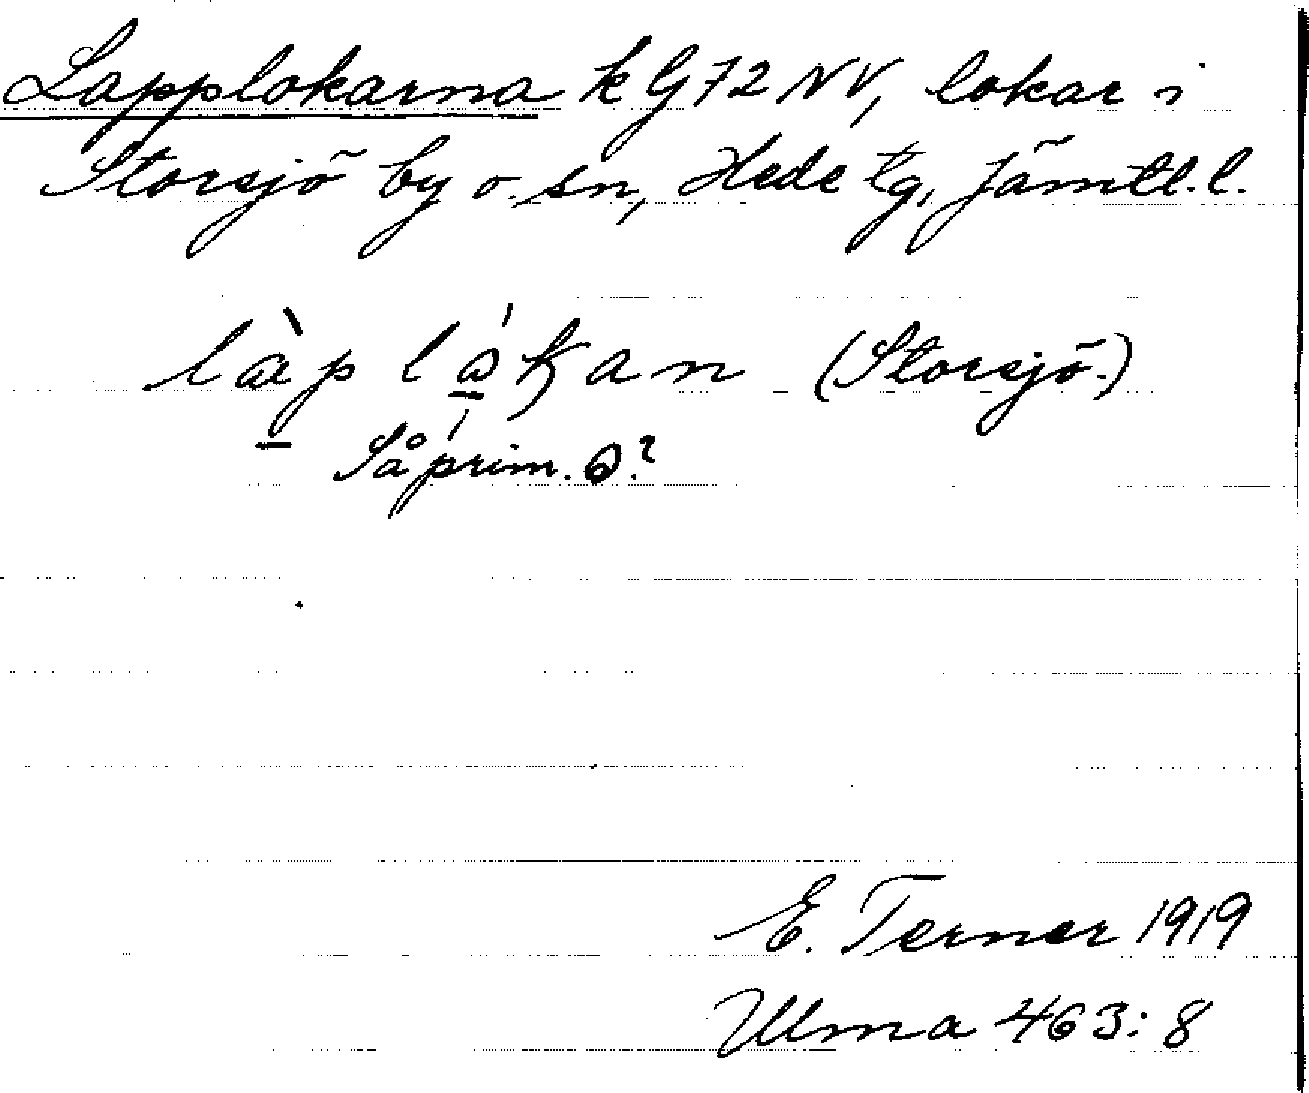 Lapplokarna k G72 NV, lokar i
Storsjö by o. sn, Hede tg, Jämtl. l.
làplåkan (Storsjö.)
Så prim. ?
E. Terner 1919
Ulma 463:8